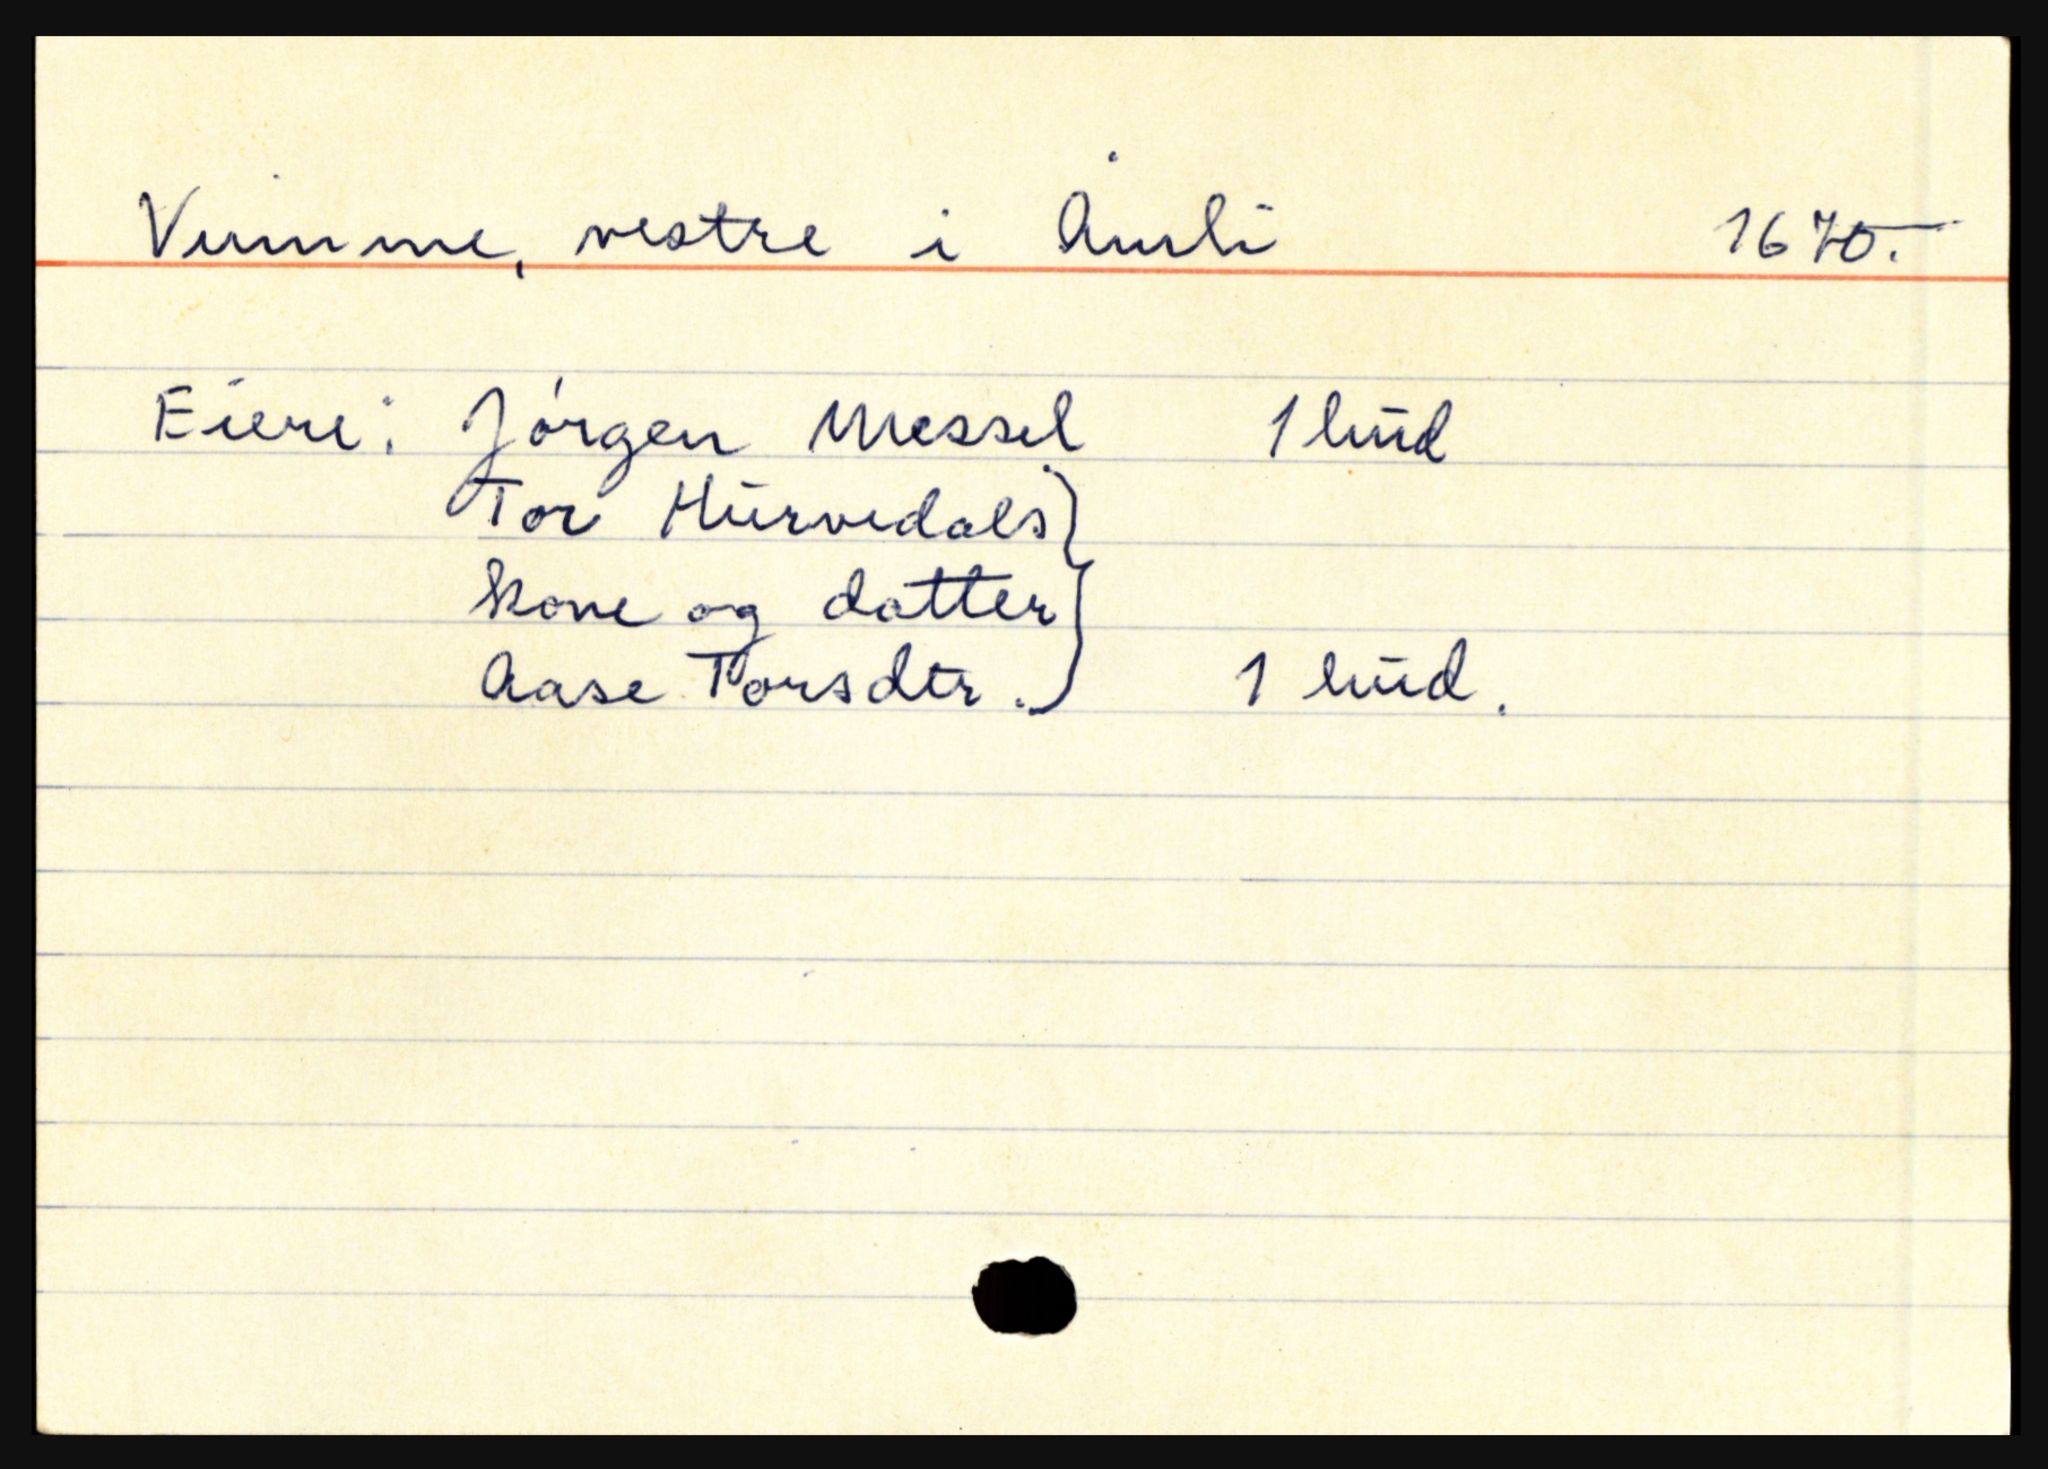 Vimme, vestre i Åmli 1670.
Eiere: Jørgen Messel 1 hud
Tor Hurvedals
kone og datter
Aase Torsdtr. 1 hud.